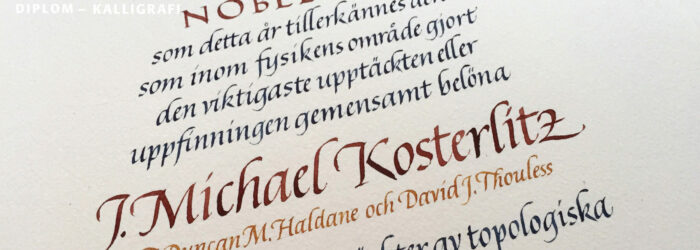 DIPLOM – KALLIGRAFI
NOBEL
som detta år tillerkännes den
som inom fysikens område gjort
den viktigaste upptäckten eller
uppfinningen gemensamt belöna
J. Michael Kosterlitz
Duncan M. Haldane och David J. Thouless
av topologiska